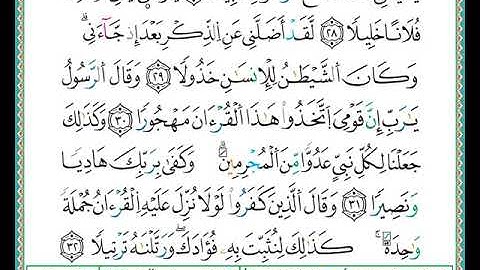 فُلَانًا خَلِيلًا ٢٨ لَّقَدْ أَضَلَّنِي عَنِ الذِّكْرِ بَعْدَ إِذْ جَآءَنِي ۗ
وَكَانَ الشَّيْطَٰنُ لِلْإِنسَٰنِ خَذُولًا ٢٩ وَقَالَ الرَّسُولُ
يَٰرَبِّ إِنَّ قَوْمِي اتَّخَذُوا هَٰذَا الْقُرْءَانَ مَهْجُورًا ٣٠ وَكَذَٰلِكَ
جَعَلْنَا لِكُلِّ نَبِيٍّ عَدُوًّا مِّنَ الْمُجْرِمِينَ ۗ وَكَفَىٰ بِرَبِّكَ هَادِيًا
وَنَصِيرًا ٣١ وَقَالَ الَّذِينَ كَفَرُوا لَوْلَا نُزِّلَ عَلَيْهِ الْقُرْءَانُ جُمْلَةً
وَٰحِدَةً ۚ كَذَٰلِكَ لِنُثَبِّتَ بِهِ فُؤَادَكَ ۖ وَرَتَّلْنَٰهُ تَرْتِيلًا ٣٢